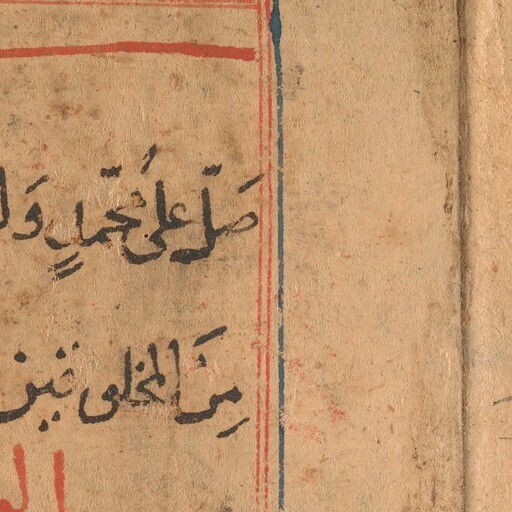 صَلِّ عَلَى مُحَمَّدٍ وَ
مِنَ المخلوقين